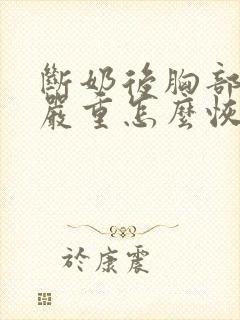 斷奶後胸部
嚴重怎麼恢
於康震